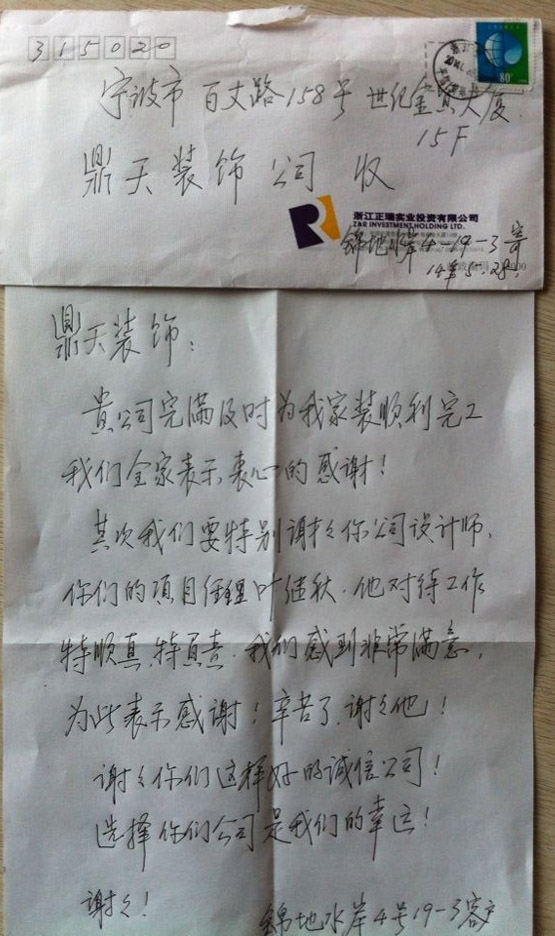 315020
80
宁波市 百丈路158号 世纪金贸大厦
15F
鼎天装饰公司 收
浙江正瑞实业投资有限公司
Z&R INVESTMENT HOLDING LTD.
锦地水岸4-19-3寄
14年5.28.
鼎天装饰:
贵公司完满及时为我家装顺利完工
我们全家表示衷心的感谢!
其次我们要特别谢谢你公司设计师,
你们的项目经理叶继秋.他对待工作
特顺真.特负责.我们感到非常满意,
为此表示感谢!辛苦了,谢谢他!
谢谢你们这样好的诚信公司!
选择你们公司是我们的幸运!
谢谢!
锦地水岸4号19-3客户